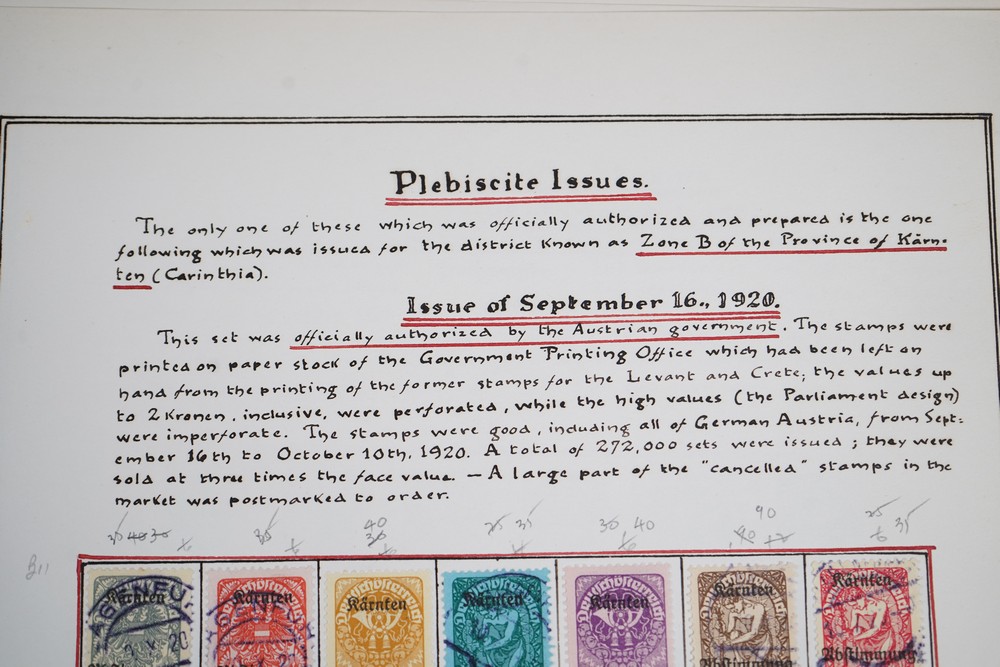 Plebiscite Issues.
The only one of these which was officially authorized and prepared is the one
following which was issued for the district known as Zone B of the Province of Kärn-
ten (Carinthia).
Issue of September 16., 1920.
This set was officially authorized by the Austrian government. The stamps were
printed on paper stock of the Government Printing Office which had been left on
hand from the printing of the former stamps for the Levant and Crete; the values up
to 2 Kronen, inclusive, were perforated, while the high values (the Parliament design)
were imperforate. The stamps were good, including all of German Austria, from Sept-
ember 16th to October 10th, 1920. A total of 272,000 sets were issued; they were
sold at three times the face value. — A large part of the "cancelled" stamps in the
market was postmarked to order.
90
40 25
35 40 30 35 30 25 35 30 40 40 35
B11
Kärnten Kärnten Kärnten Kärnten Kärnten Kärnten Kärnten
Abstimmung Abstimmung